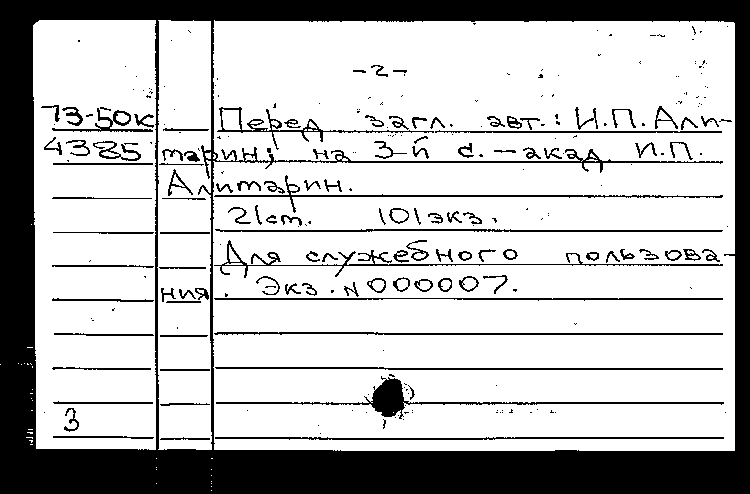 -2-
73-50к Перед загл. авт.: И.П.Али-
4385 тарин; на 3-й с. - акад. И.П.
Алитарин.
21см. 101экз.
Для служебного пользова-
ния. Экз. N000007.
3